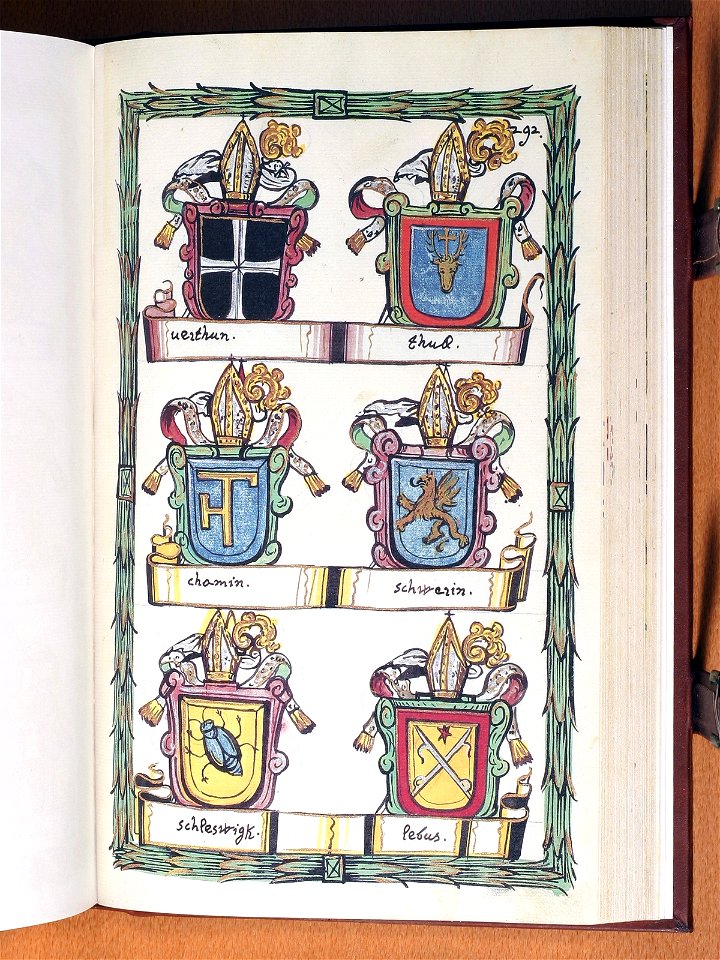 292.
uerthun.
thul.
chamin.
schwerin.
schleswigk.
lebus.